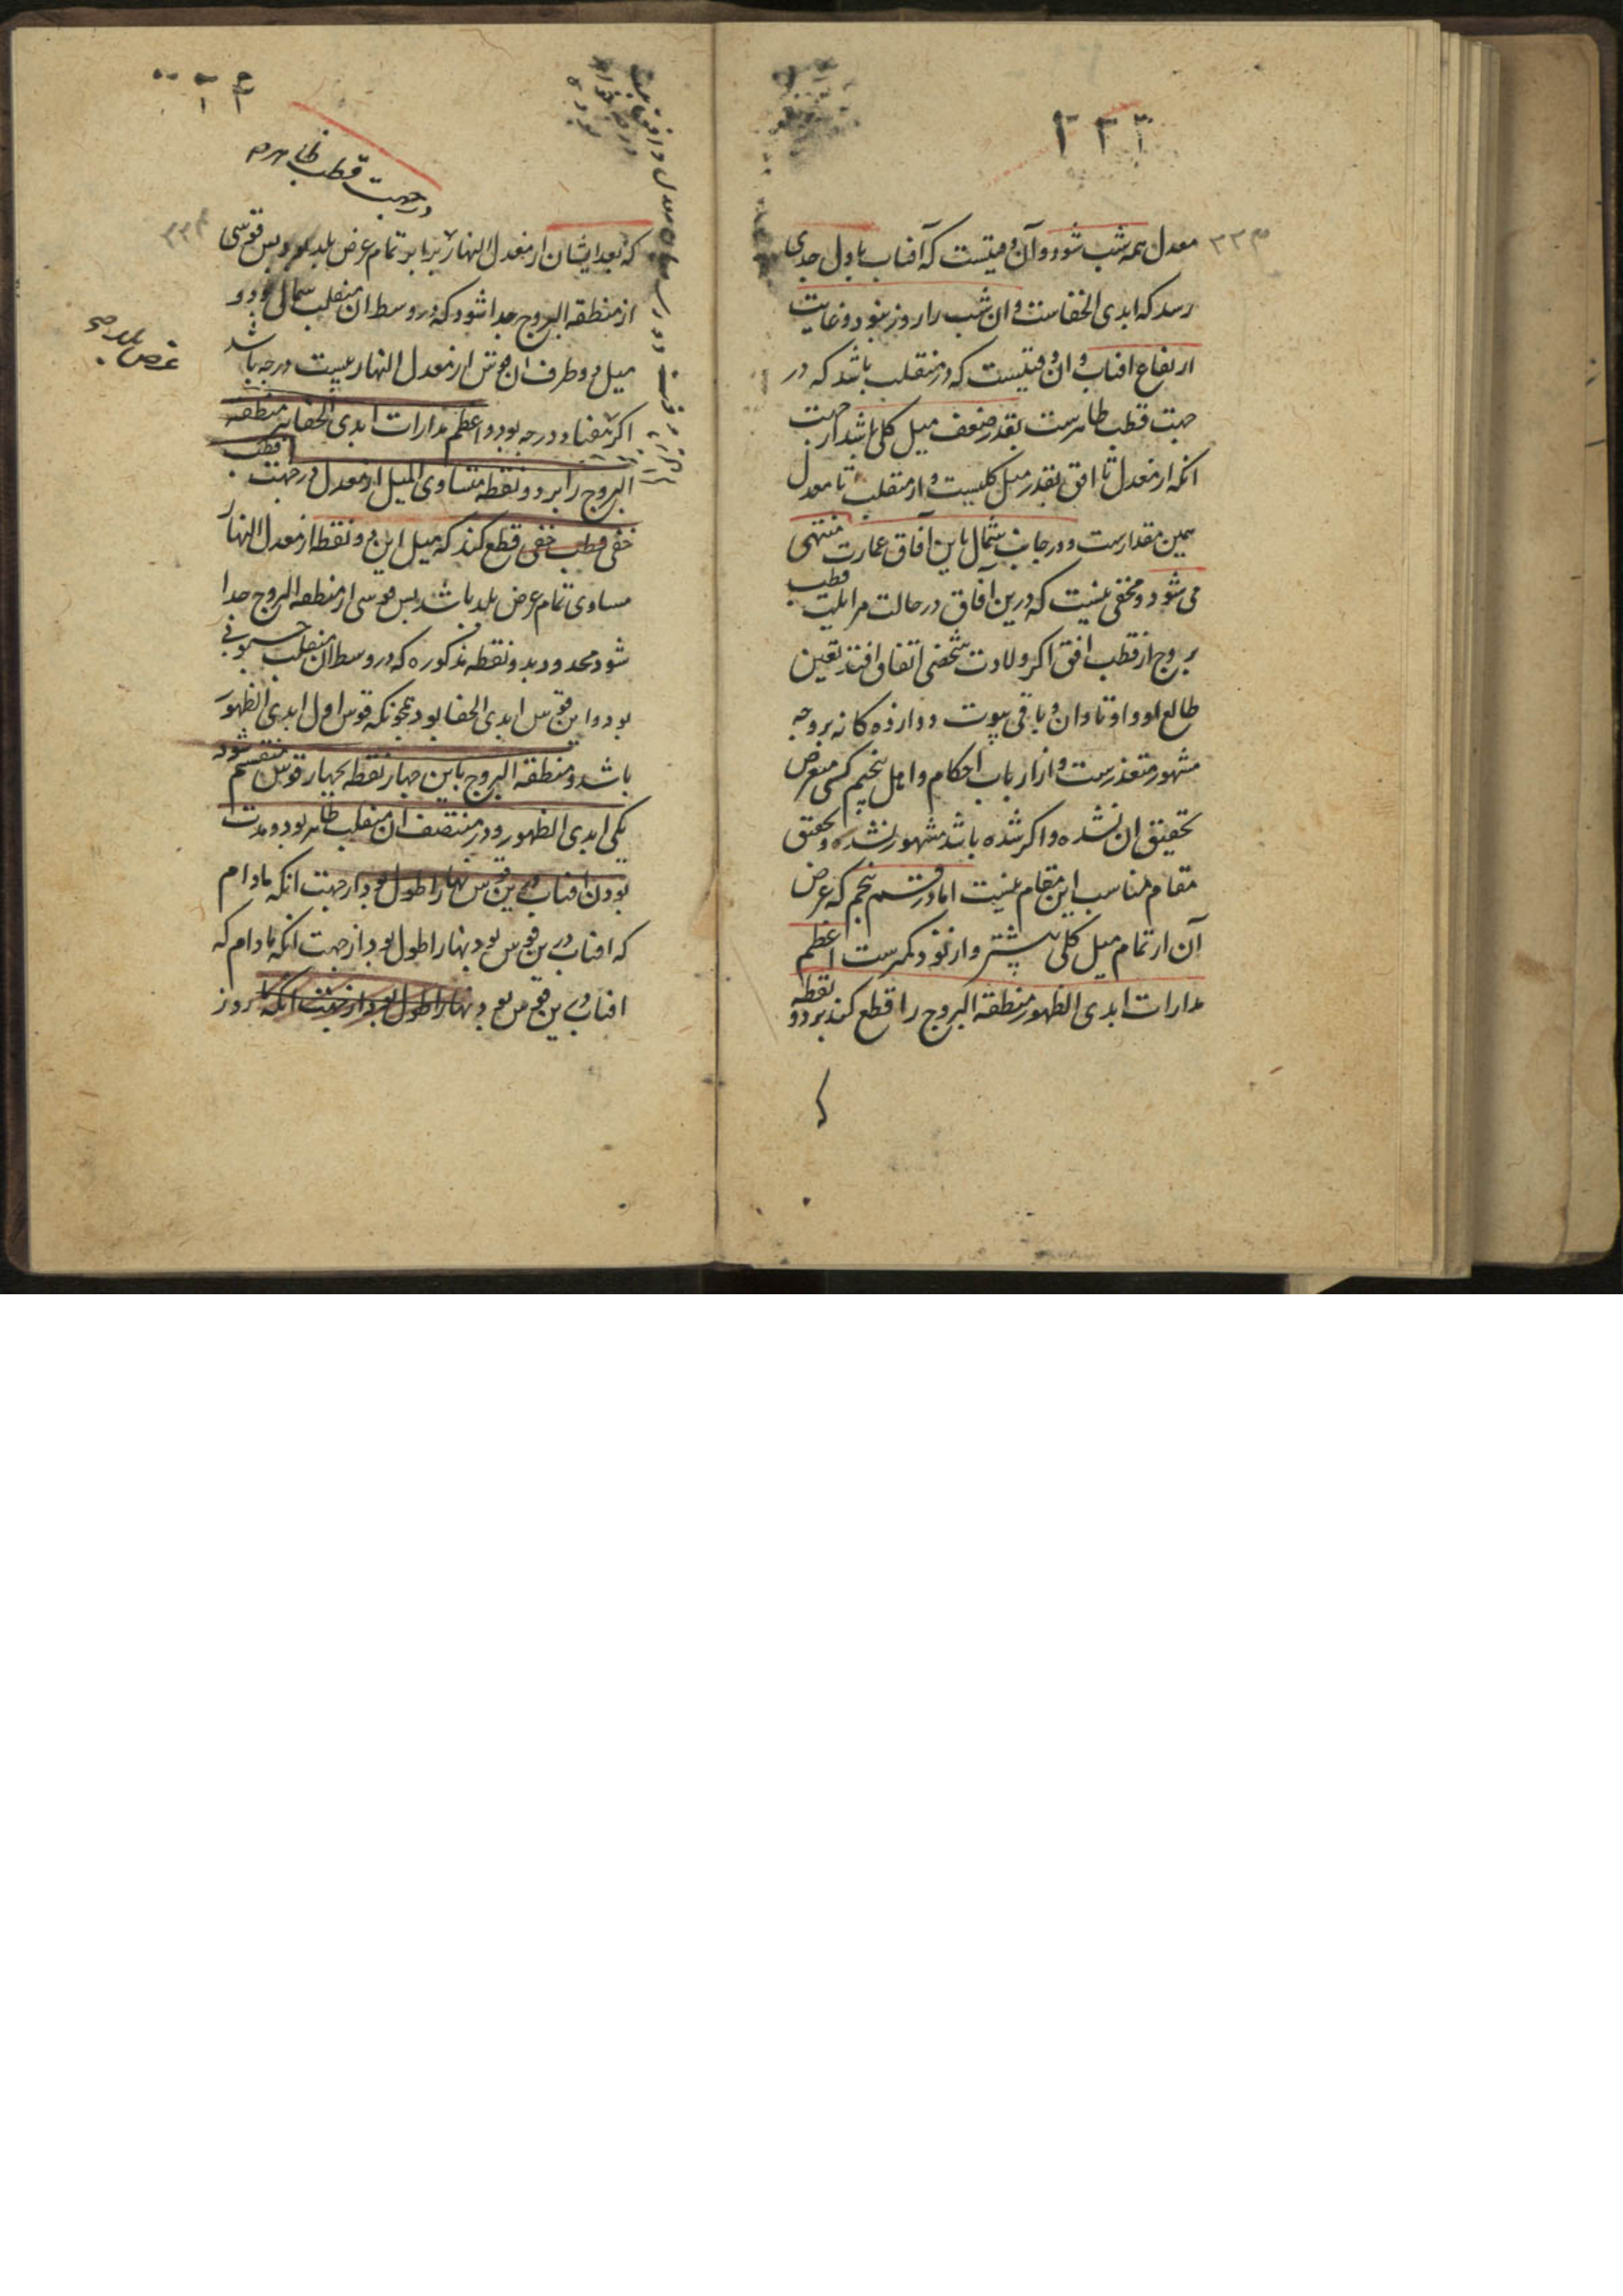 ٢٣٣
معدل همه شب شود و آن وقتیست که آفتاب باول جدی
رسد که ابدی الخفاست و ان شب را روز نبود و غایت
ارتفاع افتاب و ان وقتیست که در منقلب باشد که در
جهت قطب ظاهرست بقدر ضعف میل کلی باشد از جهت
انکه از معدل تا افق بقدر میل کلیست و از منقلب تا معدل
همین مقدارست و در جانب شمال باین آفاق عمارت منتهی
می شود و مخفی نیست که درین آفاق در حالت مزایلت قطب
بروج از قطب افق اکر ولادت شخصی اتفاق افتد تعین
طالع او و اوتاد ان و باقی بیوت دوازده کانه بر وجه
مشهور متعذرست و از ارباب احکام و اهل تنجیم کسی متعرض
تحقیق ان نشده و اکر شده باشد مشهور نشده و تحقیق
مقام مناسب این مقام نیست اما در قسم پنجم که عرض
آن از تمام میل کلی بیشتر و از نود کمترست اعظم
مدارات ابدی الظهور منطقة البروج را قطع کند بر دو نقطه
در جهت قطب ظاهر
که بعد ایشان از معدل النهار برابر تمام عرض بلد بود پس قوسی
از منطقة البروج جدا شود که در وسط ان منقلب شمالی بود و
میل دو طرف ان قوس از معدل النهار بیست درجه باشد
عرض بلد
اکر هفتاد درجه بود و اعظم مدارات ابدی الخفا نیز منطقه
البروج را بر دو نقطه متساوی المیل از معدل در جهت قطب
خفی قطب خفی قطع کند که میل این دو نقطه از معدل النهار
مساوی تمام عرض بلد باشد پس قوسی از منطقة البروج جدا
شود محدود بدو نقطه مذکوره که در وسط ان منقلب جنوبی
بود و این قوس ابدی الخفا بود همچونکه قوس اول ابدی الظهور
باشد و منطقة البروج باین چهار نقطه بچهار قوس منقسم شود
یکی ابدی الظهور و در منتصف ان منقلب ظاهر بود و مدت
بودن افتاب درین قوس نهار اطول بود از جهت انکه مادام
که افتاب درین قوس بود نهار اطول بود از جهت انکه مادام که
افتاب درین قوس بود نهار اطول بود از جهت انکه تا روز